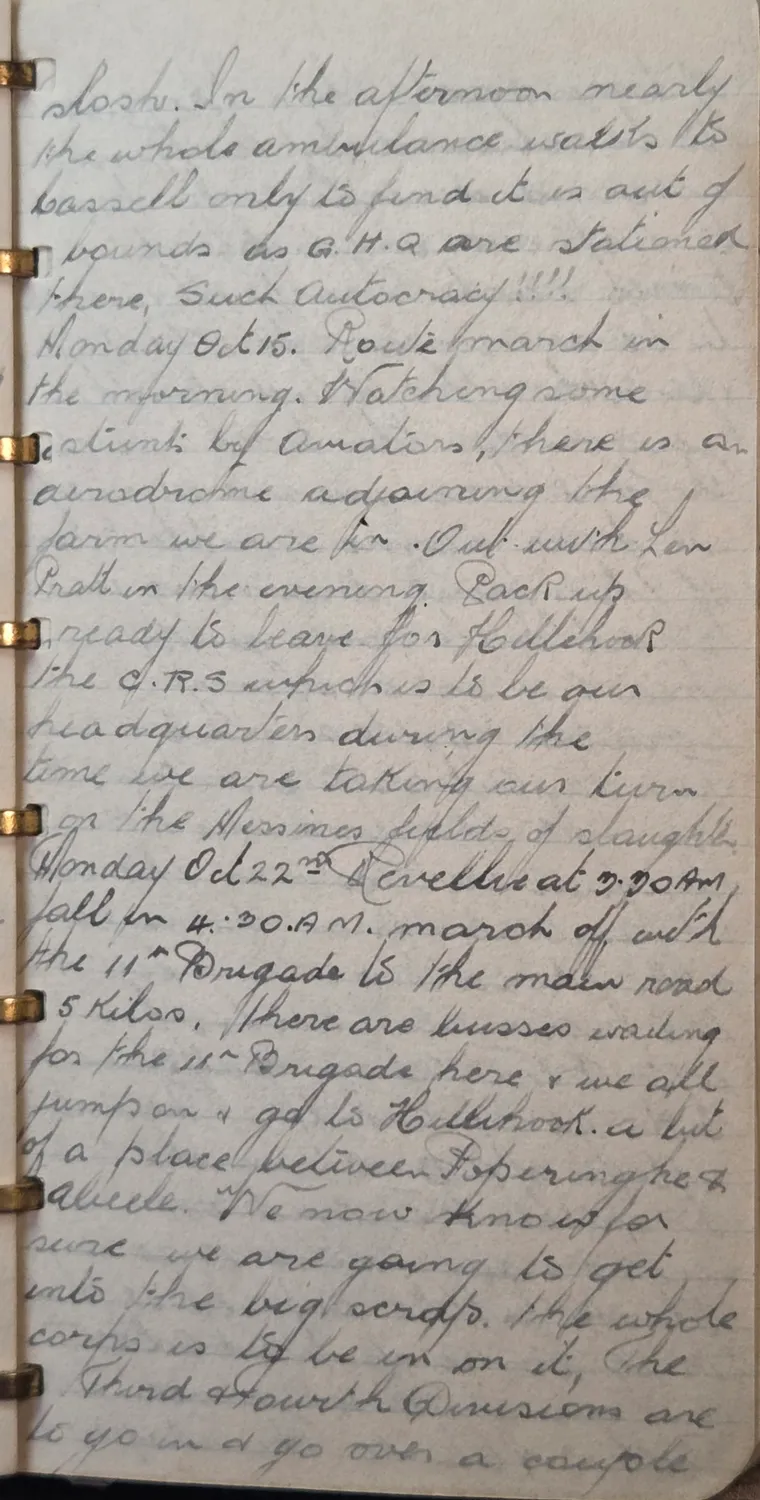 slosh. In the afternoon nearly
the whole ambulance walks to
Cassell only to find it is out of
bounds as G.H.Q are stationed
there, Such Autocracy!!!!
Monday Oct 15. Route march in
the morning. Watching some
stunts by Aviators, there is an
aerodrome adjoining the
farm we are in. Out with Len
Pratt in the evening. Pack up
ready to leave for Hillihook
the C.R.S which is to be our
headquarters during the
time we are taking our turn
on the Messines fields of slaughter.
Monday Oct 22nd Revellie at 3.30 AM,
fall in 4.30.A.M. march off with
the 11th Brigade to the main road
5 Kilos. There are busses waiting
for the 11th Brigade here & we all
jump on & go to Hillihook. a bit
of a place between Poperinghe &
Abeele. We now know for
sure we are going to get
into the big scrap. the whole
corps is to be in on it, The
Third & Fourth Divisions are
to go in & go over a couple